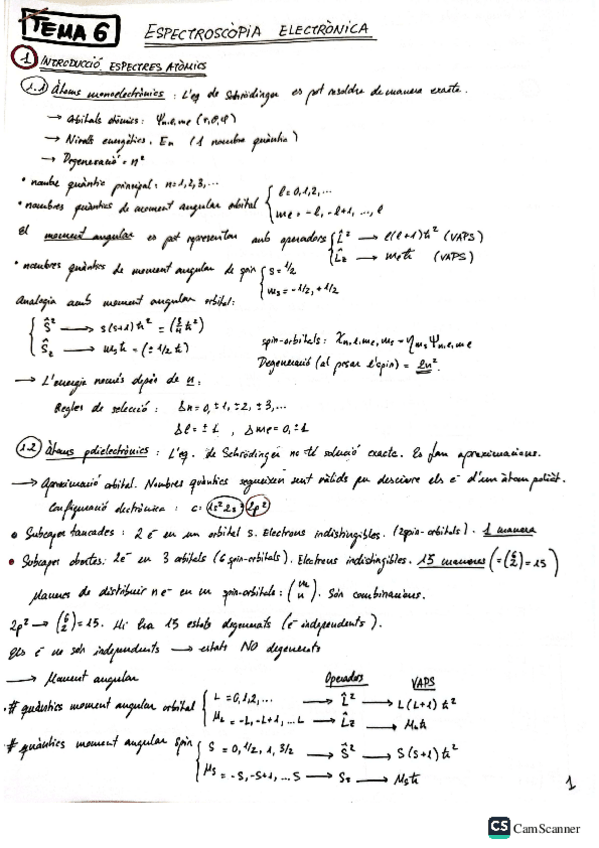 TEMA 6 ESPECTROSCÒPIA ELECTRÒNICA
1 INTRODUCCIÓ ESPECTRES ATÒMICS
1.1 Àtoms monoelectrònics : L'eq de Schrödinger es pot resoldre de manera exacte.
→ Orbitals atòmics: Ψn,l,ml (r,θ,φ)
→ Nivells energètics. En (1 nombre quàntic)
→ Degeneració = n²
• nombre quàntic principal: n=1,2,3,...
• nombres quàntics de moment angular orbital { l=0,1,2,...
ml = -l, -l+1, ..., l
El moment angular es pot representar amb operadors { L̂² → l(l+1)ħ² (VAPS)
L̂z → mlħ (VAPS)
• nombres quàntics de moment angular de spin { s=1/2
ms = -1/2, +1/2
Analogia amb moment angular orbital:
{ Ŝ² → s(s+1)ħ² = (3/4 ħ²)
Ŝz → msħ = (± 1/2 ħ)
spin-orbitals: χn,l,ml,ms = ηms Ψn,l,ml
Degeneració (al posar l'spin) = 2n².
→ L'energia només depèn de n.
Regles de selecció : Δn = 0, ±1, ±2, ±3,...
Δl = ±1 , Δml = 0, ±1
1.2 Àtoms polielectrònics : L'eq. de Schrödinger no té solució exacte. Es fan aproximacions.
→ Aproximació orbital. Nombres quàntics segueixen sent vàlids per descriure els e⁻ d'un àtom poliel.
Configuració electrònica : C: 1s² 2s² 2p²
• Subcapes tancades : 2 e⁻ en un orbital s. Electrons indistingibles. (2 spin-orbitals). 1 manera
• Subcapes obertes: 2e⁻ en 3 orbitals (6 spin-orbitals). Electrons indistingibles. 15 maneres (= (6 2) = 15)
Maneres de distribuir n e⁻ en m spin-orbitals : (m n). Són combinacions.
2p² → (6 2) = 15. Hi ha 15 estats degenerats (e⁻ independents).
Els e⁻ no són independents → estats NO degenerats
→ Moment angular Operadors VAPS
• # quàntics moment angular orbital { L = 0,1,2,... → L̂² → L(L+1) ħ²
ML = -L, -L+1, ...L → L̂z → MLħ
• # quàntics moment angular spin { S = 0, 1/2, 1, 3/2 → Ŝ² → S(S+1)ħ²
MS = -S, -S+1, ...S → Sz → MSħ
1
CS CamScanner